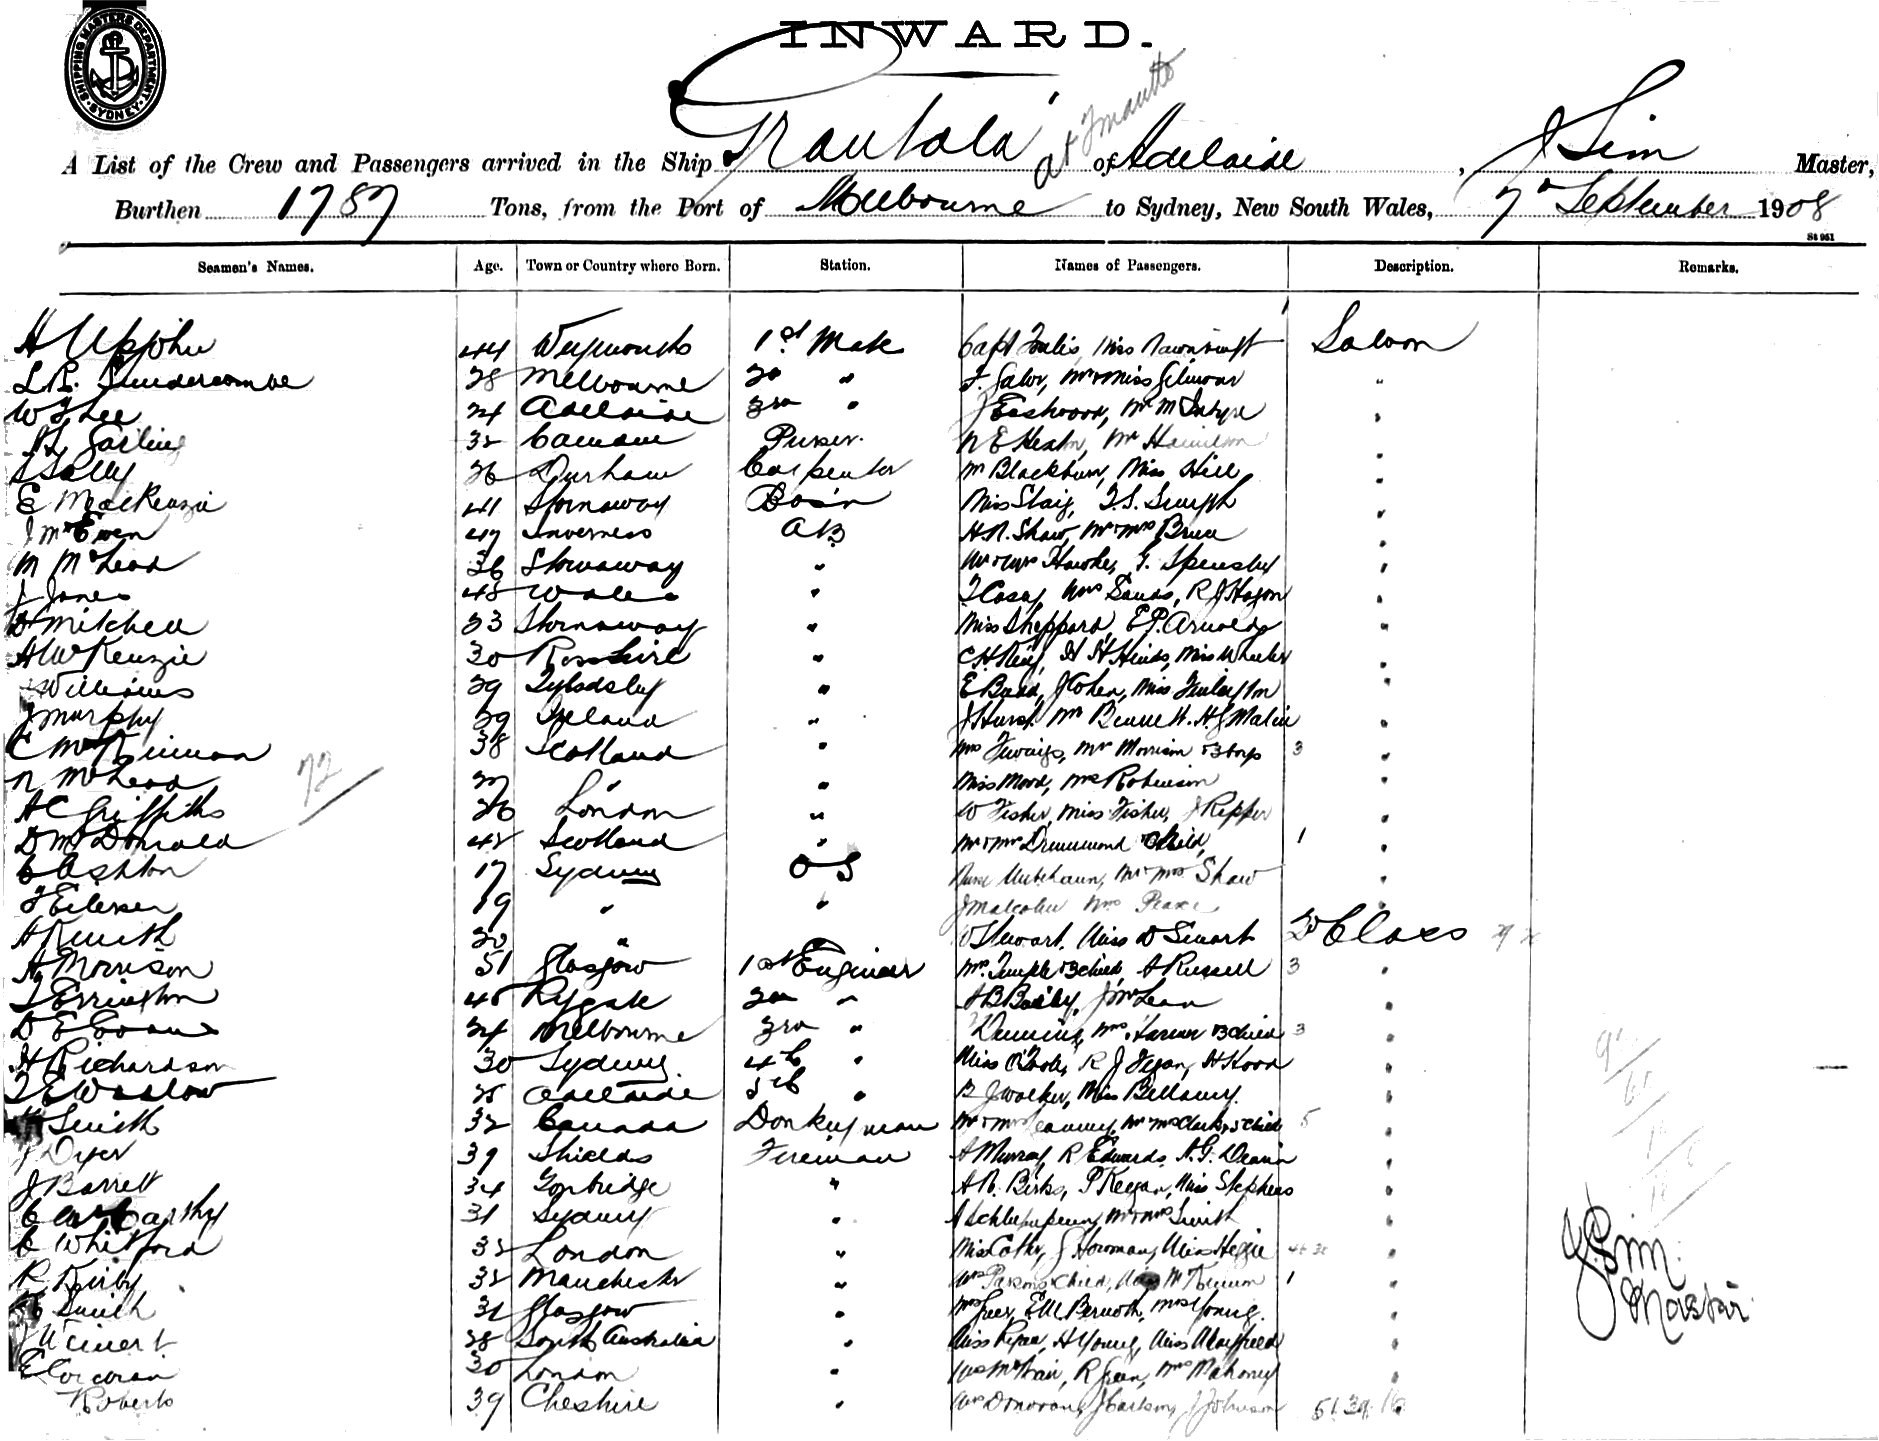 INWARD.
SHIPPING MASTERS DEPARTMENT SYDNEY
A List of the Crew and Passengers arrived in the Ship Grantala of Adelaide, J Sim Master,
Burthen 1787 Tons, from the Port of Melbourne to Sydney, New South Wales, 7th September 1908
St 961
Seamen's Names. Age. Town or Country where Born. Station. Names of Passengers. Description. Remarks.
H Upjohn 44 Weymouth 1st Mate Saloon
28 Melbourne 2d " F. Gabr, Mr & Miss Gilmour "
W T Lee 24 Adelaide 3rd " J Eastwood, Mr McIntyre "
Garling 32 Purser. N E Heath, Mr Hamilton "
26 Durham Carpenter Mr Blackburn, Miss Hill "
E MacKenzie 41 Stornaway Bos'n Miss "
J McEwen 47 Inverness AB H. N. Shaw, Mr & Mrs Bruce "
M McLeod 36 Stornaway " Mr & Mrs Hawke, G. "
J Jones 48 Wales " T Casey, Mrs Sands, R J Hogon "
D Mitchell 33 Stornaway " Miss Sheppard, E P. Arnold "
A McKenzie 30 Rosshire " C H King, H H Hinds, Miss Wheeler "
Williams 29 Tyldsley " E Budd, J Cohen, Miss "
J Murphy 39 Ireland " J Hurst Mr Bennett. H J Malin "
C McKinnon 38 Scotland " Mrs Mr Morrison & 3 boys 3
N McLeod 27 " " Miss Mood, Mrs Robinson "
72
A C Griffiths 26 London " W Fisher, Miss Fisher, J Kepper "
D McDonald 42 Scotland " Mr & Mrs Drummond & Child, 1 "
C Ashton 17 Sydney OS Mr & Mrs Shaw "
F Eilersen 19 " " J Malcolm Mrs Peare "
20 " " W Stewart, Miss D Smart 2d Class
A Morrison 51 Glasgow 1st Engineer Mrs Temple & 3 child, A Russell 3 "
T Errington 45 Rygate 2nd " A B Bailey, J McLean "
D E Evans 24 Melbourne 3rd " Mrs & 3 child 3 "
H Richardson 30 Sydney 4th " Miss O'Toole, R J Fegan, H Hood "
T E Waslow 25 Adelaide 5th " B J Walker, Miss Bellamy. "
Smith 32 Canada Donkeyman Mr & Mrs Mr Mrs Clark & 5 child 5 "
J Dyer 39 Shields Fireman A Murray, R Edwards, "
J Barrett 34 Tonbridge " A R. Birks, P Keegan, Miss Stephens "
C McCarthy 31 Sydney " Mr & Mrs Smith "
C Whitford 32 London " J Horsman, Miss "
R Kirby 32 Manchester " Mrs Parsons & child, Miss McKinnon 1 "
Smith 31 Glasgow " Mrs Young. "
J Weinert 28 South Australia " H Young, Miss "
E Corcoran 30 London " R Green, Mrs Mahoney "
Roberts 39 Cheshire " Mrs Donovan, J Johnson 51 39
J Sim.
Master